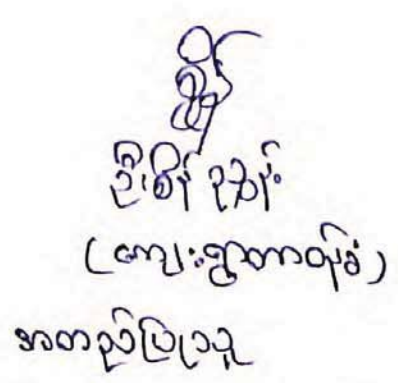 ဦးစိန် ညွန့်
(ကျေးရွာတာဝန်ခံ)
အတည်ပြုသူ